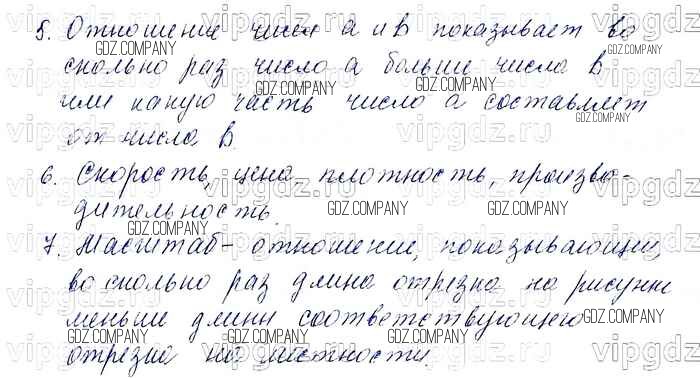 5. Отношение чисел a и b показывает во
сколько раз число a больше числа b
или какую часть число a составляет
от числа b
6. Скорость, цена плотность, произво-
дительность.
7. Масштаб - отношение, показывающий,
во сколько раз длина отрезка на рисунке
меньше длины соответствующего
отрезка на местности.